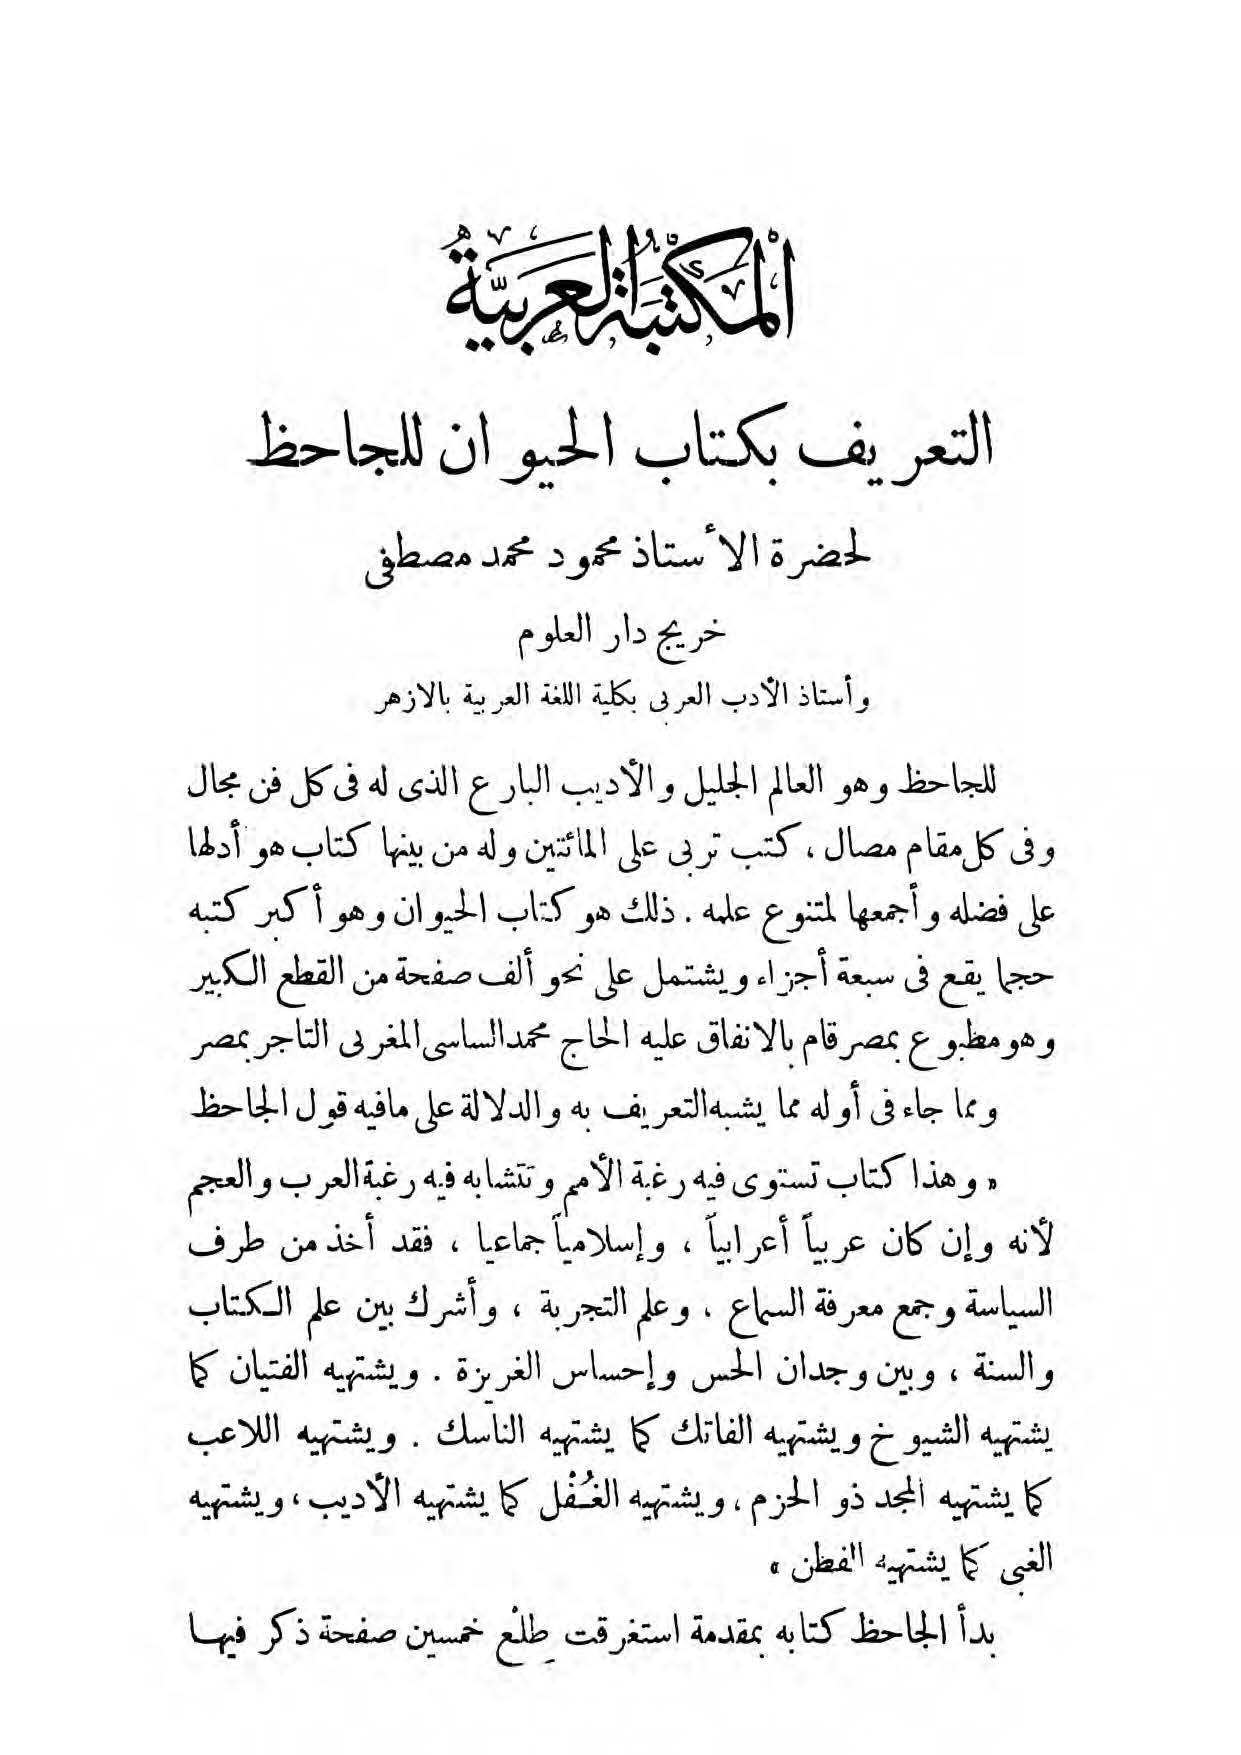 المكتبة العربية
التعريف بكتاب الحيوان للجاحظ
لحضرة الأستاذ محمود محمد مصطفى
خريج دار العلوم
وأستاذ الأدب العربى بكلية اللغة العربية بالازهر
للجاحظ وهو العالم الجليل والأديب البارع الذى له فى كل فن مجال
وفى كل مقام مصال ، كتب تربى على المائتين وله من بينها كتاب هو أدلها
على فضله وأجمعها لمتنوع علمه . ذلك هو كتاب الحيوان وهو أكبر كتبه
حجما يقع فى سبعة أجزاء ويشتمل على نحو ألف صفحة من القطع الكبير
وهو مطبوع بمصر قام بالانفاق عليه الحاج محمد الساسى المغربى التاجر بمصر
ومما جاء فى أوله مما يشبه التعريف به والدلالة على مافيه قول الجاحظ
« وهذا كتاب تستوى فيه رغبة الأمم وتتشابه فيه رغبة العرب والعجم
لأنه وإن كان عربياً أعرابياً ، وإسلامياً جماعيا ، فقد أخذ من طرف
السياسة وجمع معرفة السماع ، وعلم التجربة ، وأشرك بين علم الكتاب
والسنة ، وبين وجدان الحس وإحساس الغريزة . ويشتهيه الفتيان كما
يشتهيه الشيوخ ويشتهيه الفاتك كما يشتهيه الناسك . ويشتهيه اللاعب
كما يشتهيه المجد ذو الحزم ، ويشتهيه الغُفْل كما يشتهيه الأديب ، ويشتهيه
الغبى كما يشتهيه الفطن »
بدأ الجاحظ كتابه بمقدمة استغرقت طِلْع خمسين صفحة ذكر فيها